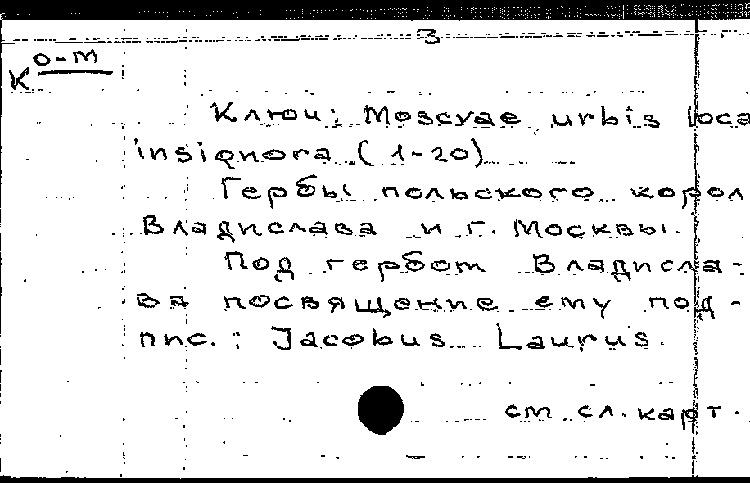 3
К о-м
Ключ: Moscvae urbis loca
insignora (1-20)
Гербы польского корол
Владислава и г. Москвы.
Под гербом Владисла-
ва посвящение ему под-
пис.: Jacobus Laurus.
см. сл. карт.